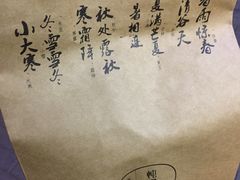 春雨惊春
清谷天
夏满芒夏
暑相连
秋处露秋
寒霜降
冬雪雪冬
小大寒